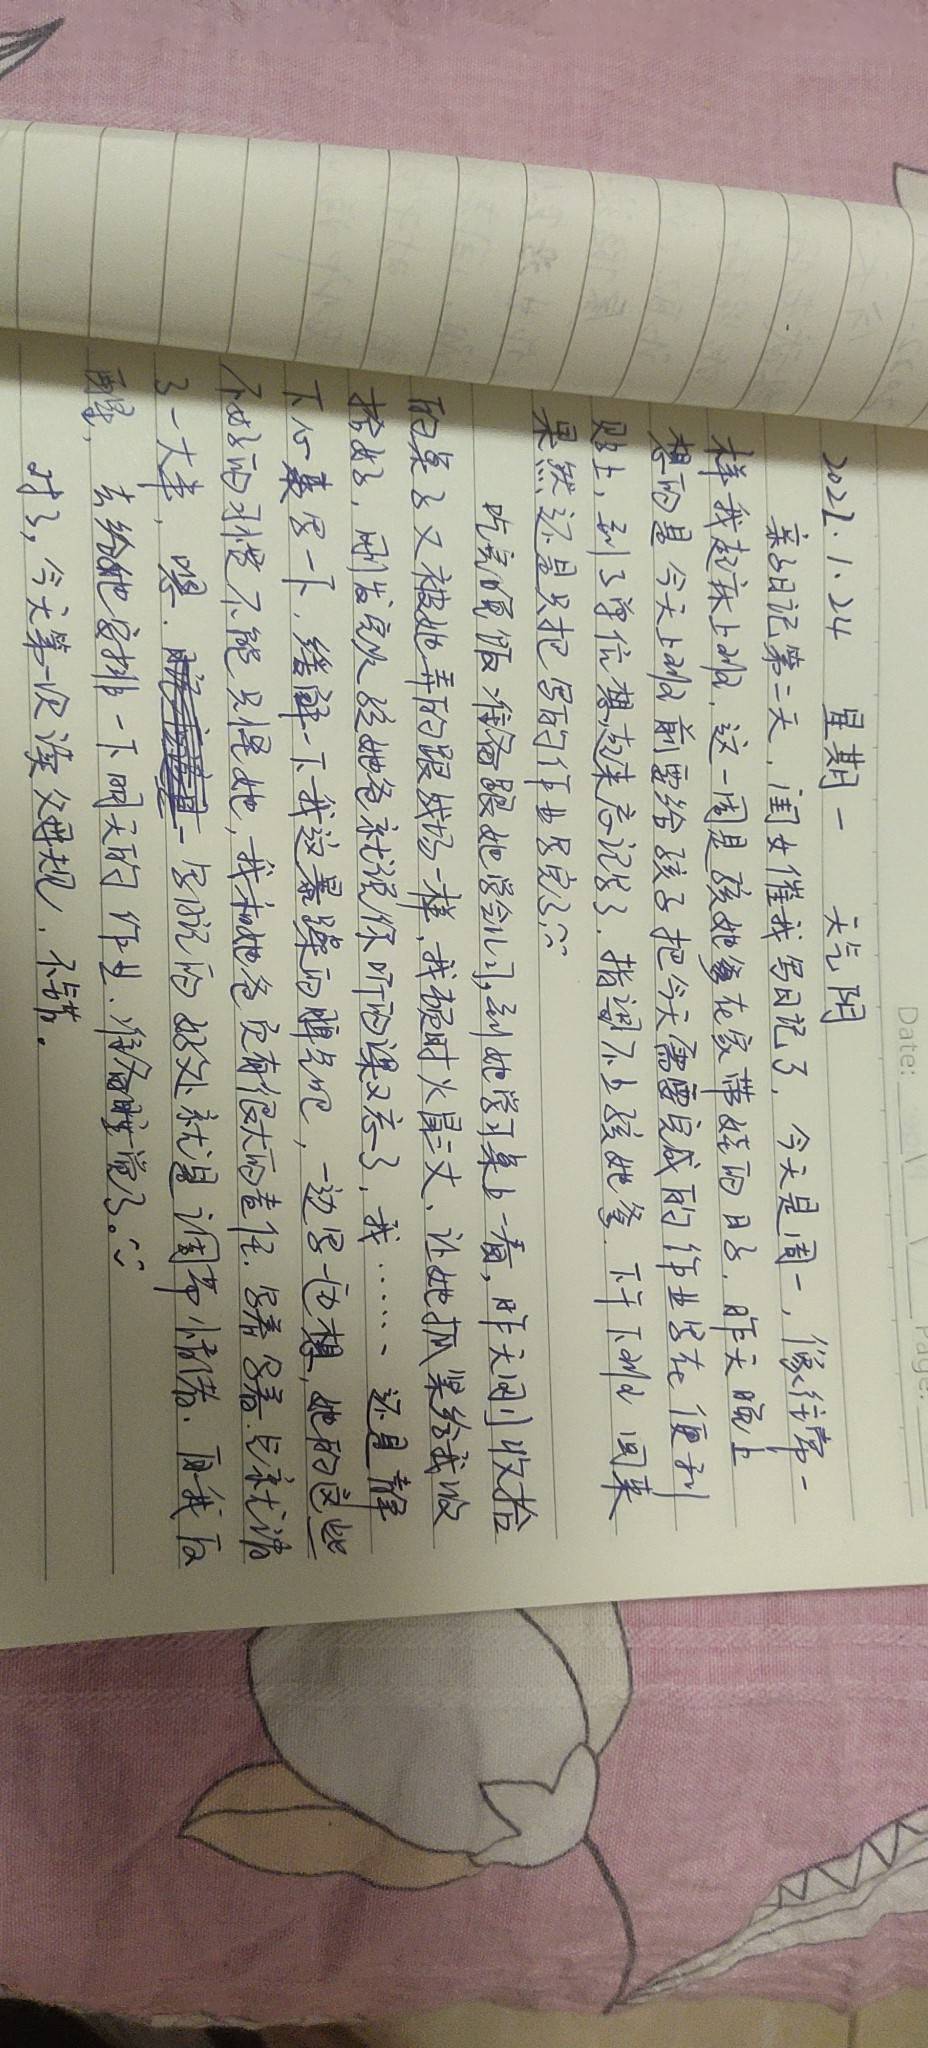 Date:
Page:
2022.1.24 星期一 天气阴
亲子日记第二天，闺女催我写日记了，今天是周一，像往常一
样我起床上班，这一周是孩她爹在家带娃的日子，昨天晚上
想的是今天上班前要给孩子把今天需要完成的作业写在便利
贴上，到了单位想起来忘记了，指望不上孩她爹，下午下班回来
果然还是只把写的作业写完了
吃完晚饭准备跟她学会儿习，到她学习桌上一看，昨天刚收拾
的桌子又被她弄的跟战场一样，我顿时火冒三丈，让她抓紧给我收
拾好，刚发完火孩她爸就说你听的课又忘了，我……还是静
下心来写一下，缓解一下我这暴躁的脾气吧，一边写一边想，她的这些
不好的习惯不能只怪她，我和她爸负有很大的责任，写着写着，气就消
了一大半，嗯，写日记的好处就是调节情绪，自我反
醒，去给她安排一下明天的作业，准备睡觉了。
对了，今天第一次读父母规，不错。